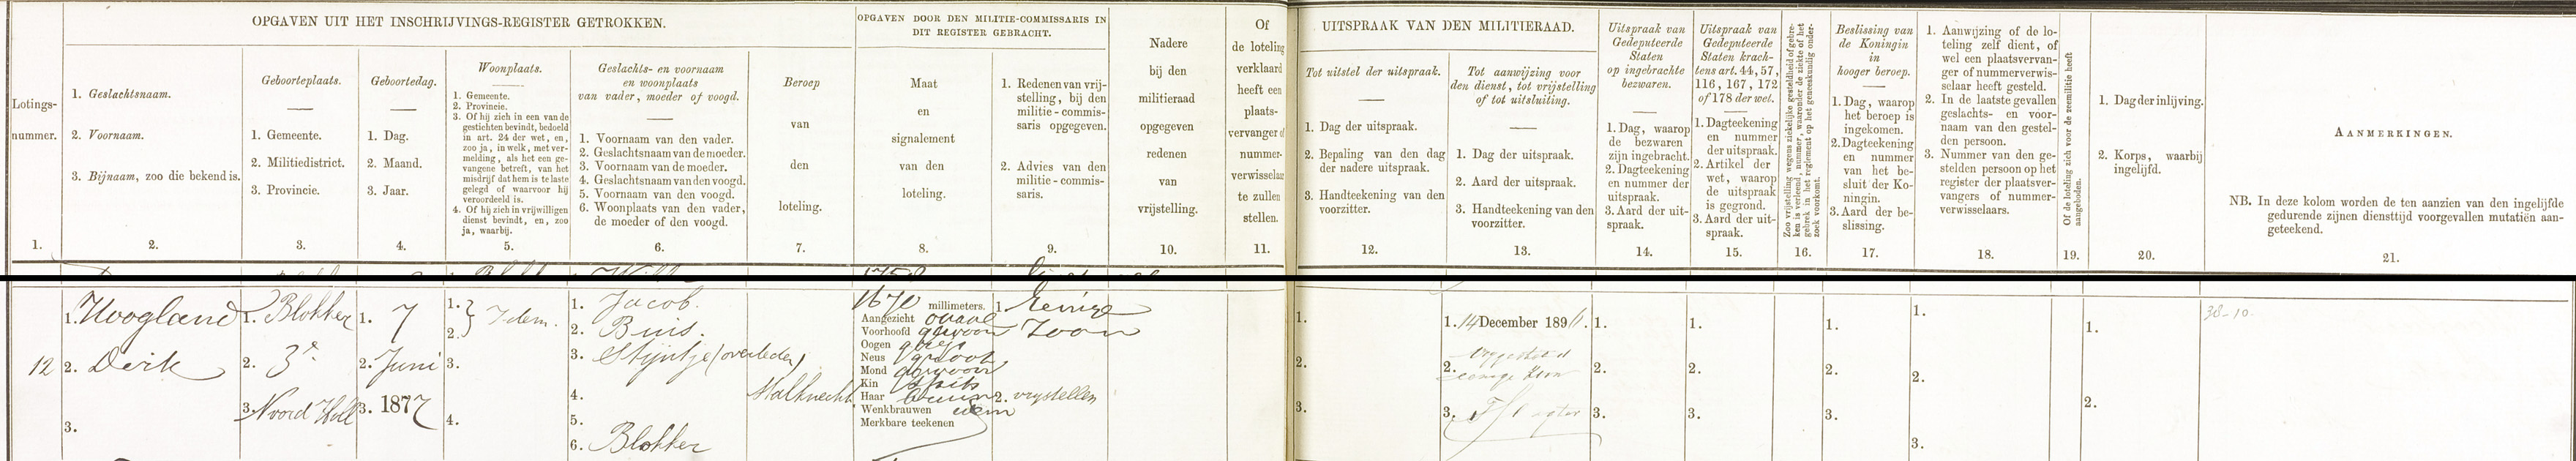 OPGAVEN UIT HET INSCHRIJVINGS-REGISTER GETROKKEN.
OPGAVEN DOOR DEN MILITIE-COMMISSARIS IN
DIT REGISTER GEBRACHT.
Lotings-
nummer.
1.
1. Geslachtsnaam.
2. Voornaam.
3. Bijnaam, zoo die bekend is.
2.
Geboorteplaats.
1. Gemeente.
2. Militiedistrict.
3. Provincie.
3.
Geboortedag.
1. Dag.
2. Maand.
3. Jaar.
4.
Woonplaats.
1. Gemeente.
2. Provincie.
3. Of hij zich in een van de
gestichten bevindt, bedoeld
in art. 24 der wet, en,
zoo ja, in welk, met ver-
melding, als het een ge-
vangene betreft, van het
misdrijf dat hem is te laste
gelegd of waarvoor hij
veroordeeld is.
4. Of hij zich in vrijwilligen
dienst bevindt, en, zoo
ja, waarbij.
5.
Geslachts- en voornaam
en woonplaats
van vader, moeder of voogd.
1. Voornaam van den vader.
2. Geslachtsnaam van de moeder.
3. Voornaam van de moeder.
4. Geslachtsnaam van den voogd.
5. Voornaam van den voogd.
6. Woonplaats van den vader,
de moeder of den voogd.
6.
Beroep
van
den
loteling.
7.
Maat
en
signalement
van den
loteling.
8.
1. Redenen van vrij-
stelling, bij den
militie-commis-
saris opgegeven.
2. Advies van den
militie-commis-
saris.
9.
Nadere
bij den
militieraad
opgegeven
redenen
van
vrijstelling.
10.
Of
de loteling
verklaard
heeft een
plaats-
vervanger of
nummer-
verwisselaar
te zullen
stellen.
11.
UITSPRAAK VAN DEN MILITIERAAD.
Tot uitstel der uitspraak.
1. Dag der uitspraak.
2. Bepaling van den dag
der nadere uitspraak.
3. Handteekening van den
voorzitter.
12.
Tot aanwijzing voor
den dienst, tot vrijstelling
of tot uitsluiting.
1. Dag der uitspraak.
2. Aard der uitspraak.
3. Handteekening van den
voorzitter.
13.
Uitspraak van
Gedeputeerde
Staten
op ingebrachte
bezwaren.
1. Dag, waarop
de bezwaren
zijn ingebracht.
2. Dagteekening
en nummer der
uitspraak.
3. Aard der uit-
spraak.
14.
Uitspraak van
Gedeputeerde
Staten krach-
tens art. 44, 57,
116, 167, 172
of 178 der wet.
1. Dagteekening
en nummer
der uitspraak.
2. Artikel der
wet, waarop
de uitspraak
is gegrond.
3. Aard der uit-
spraak.
15.
Zoo vrijstelling wegens ziekelijke gesteldheid of gebre-
ken is verleend, nummer, waaronder de ziekte of het
gebrek in het reglement op het geneeskundig onder-
zoek voorkomt.
16.
Beslissing van
de Koningin
in
hooger beroep.
1. Dag, waarop
het beroep is
ingekomen.
2. Dagteekening
en nummer
van het be-
sluit der Ko-
ningin.
3. Aard der be-
slissing.
17.
1. Aanwijzing of de lo-
teling zelf dient, of
wel een plaatsvervan-
ger of nummerverwis-
selaar heeft gesteld.
2. In de laatste gevallen
geslachts- en voor-
naam van den gestel-
den persoon.
3. Nummer van den ge-
stelden persoon op het
register der plaatsver-
vangers of nummer-
verwisselaars.
18.
Of de loteling zich voor de zeemilitie heeft
aangeboden.
19.
1. Dag der inlijving.
2. Korps, waarbij
ingelijfd.
20.
AANMERKINGEN.
NB. In deze kolom worden de ten aanzien van den ingelijfde
gedurende zijnen diensttijd voorgevallen mutatiën aan-
geteekend.
21.
12
1. Hoogland
2. Derk
3.
1. Blokker
2. 3e
3. Noord Holl
1. 7
2. Juni
3. 1877
1. } Idem.
2.
3.
4.
1. Jacob.
2. Buis.
3. Stijntje (overleden)
4.
5.
6. Blokker
Stalknecht
1670 millimeters.
Aangezicht ovaal
Voorhoofd gewoon
Oogen grijs
Neus groot
Mond gewoon
Kin spits
Haar bruin
Wenkbrauwen idem
Merkbare teekenen
1. Eenige
Zoon
2. vrijstellen
1.
2.
3.
1. 14 December 1896.
2. Vrijgesteld
eenige zoon
3.
1.
2.
3.
1.
2.
3.
1.
2.
3.
1.
2.
3.
1.
2.
38-10.